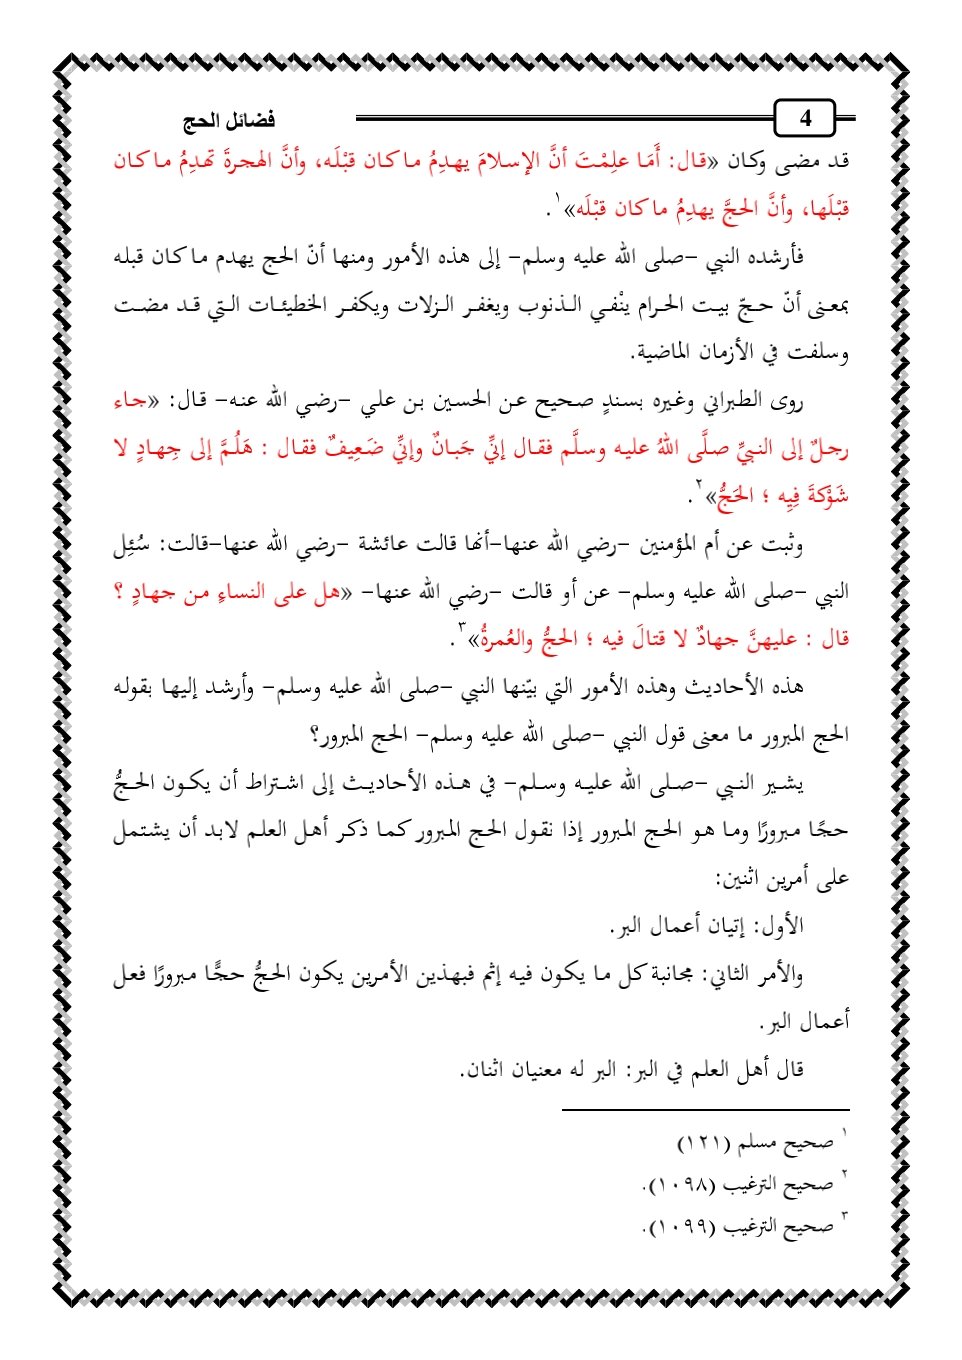 4
فضائل الحج
قد مضى وكان «قال: أَمَا علِمْتَ أنَّ الإسلامَ يهدِمُ ما كان قبْلَه، وأنَّ الهجرةَ تهدِمُ ما كان
قبْلَها، وأنَّ الحجَّ يهدِمُ ما كان قبْلَه»١.
فأرشده النبي –صلى الله عليه وسلم– إلى هذه الأمور ومنها أنّ الحج يهدم ما كان قبله
بمعنى أنّ حجّ بيت الحرام ينْفي الذنوب ويغفر الزلات ويكفر الخطيئات التي قد مضت
وسلفت في الأزمان الماضية.
روى الطبراني وغيره بسندٍ صحيح عن الحسين بن علي –رضي الله عنه– قال: «جاء
رجلٌ إلى النبيِّ صلَّى اللهُ عليه وسلَّم فقال إنِّي جَبانٌ وإنِّي ضَعِيفٌ فقال : هَلُمَّ إلى جِهادٍ لا
شَوْكةَ فِيِه ؛ الحَجُّ»٢.
وثبت عن أم المؤمنين –رضي الله عنها–أنها قالت عائشة –رضي الله عنها–قالت: سُئِل
النبي –صلى الله عليه وسلم– عن أو قالت –رضي الله عنها– «هل على النساءٍ من جهادٍ ؟
قال : عليهنَّ جهادٌ لا قتالَ فيه ؛ الحجُّ والعُمرةُ»٣.
هذه الأحاديث وهذه الأمور التي بيّنها النبي –صلى الله عليه وسلم– وأرشد إليها بقوله
الحج المبرور ما معنى قول النبي –صلى الله عليه وسلم– الحج المبرور؟
يشير النبي –صلى الله عليه وسلم– في هذه الأحاديث إلى اشتراط أن يكون الحجُّ
حجًا مبرورًا وما هو الحج المبرور إذا نقول الحج المبرور كما ذكر أهل العلم لابد أن يشتمل
على أمرين اثنين:
الأول: إتيان أعمال البر.
والأمر الثاني: مجانبة كل ما يكون فيه إثم فبهذين الأمرين يكون الحجُّ حجًّا مبرورًا فعل
أعمال البر.
قال أهل العلم في البر: البر له معنيان اثنان.
١ صحيح مسلم (١٢١)
٢ صحيح الترغيب (١٠٩٨).
٣ صحيح الترغيب (١٠٩٩).